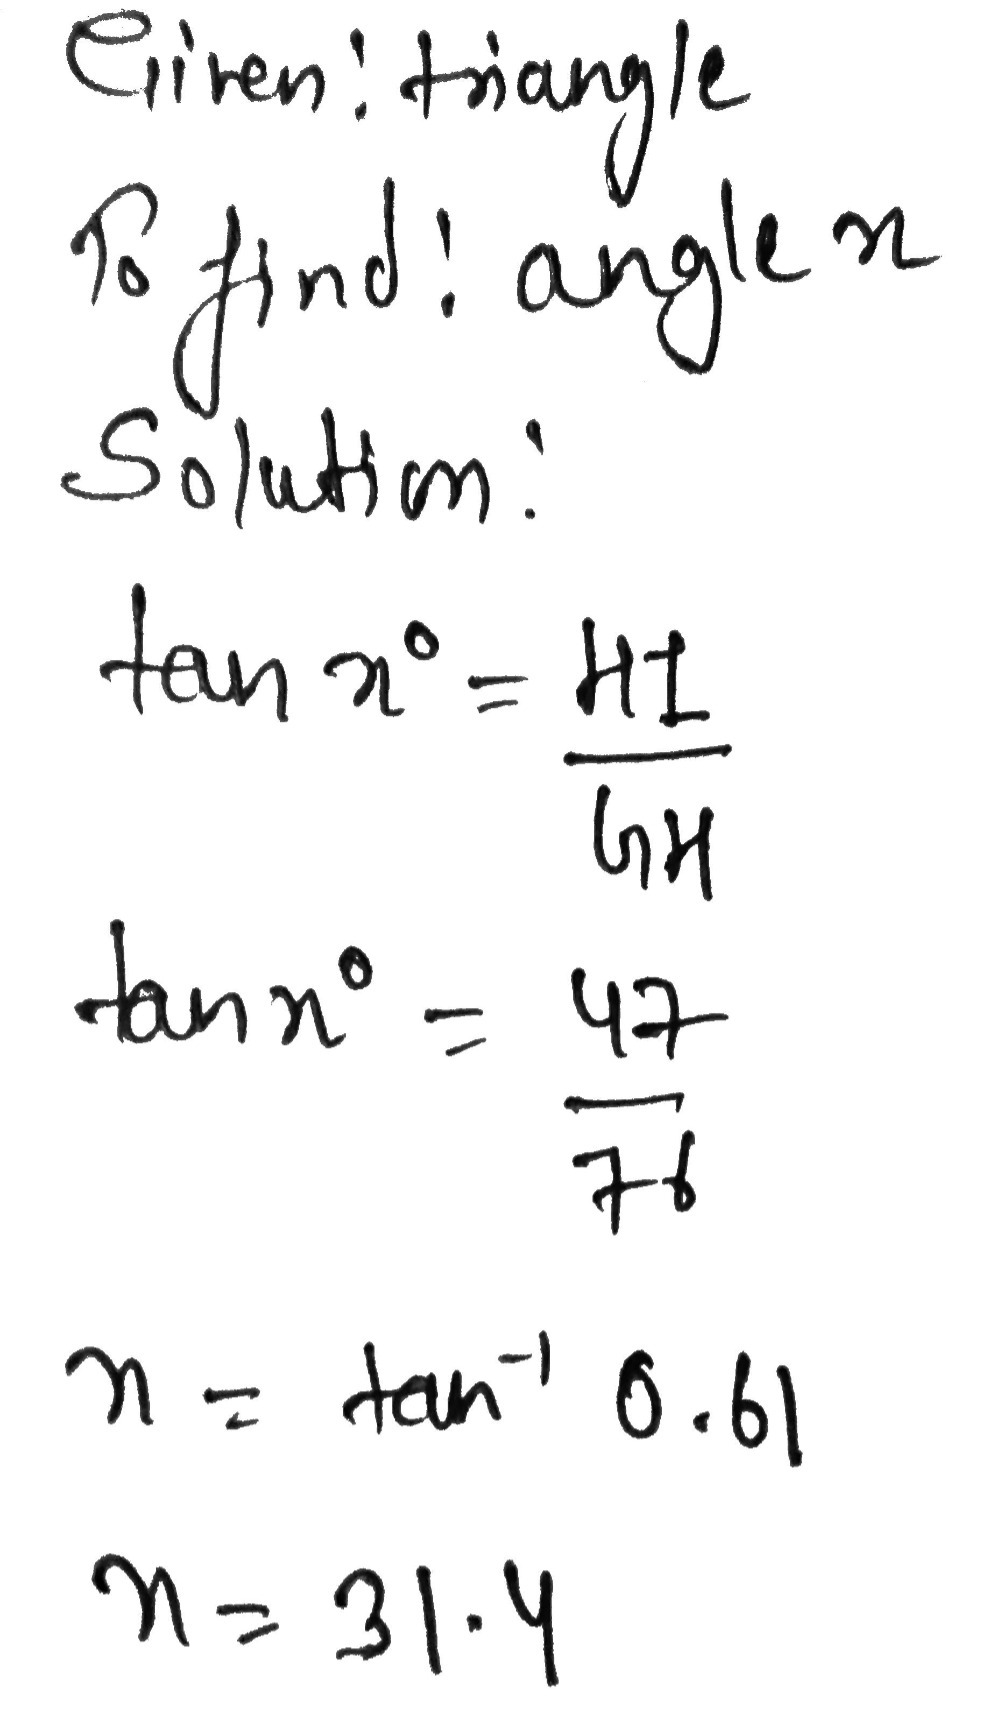 Given: triangle
To find: angle x
Solution:
tan x° = HI
GH
tan x° = 47
76
x = tan⁻¹ 0.61
x = 31.4